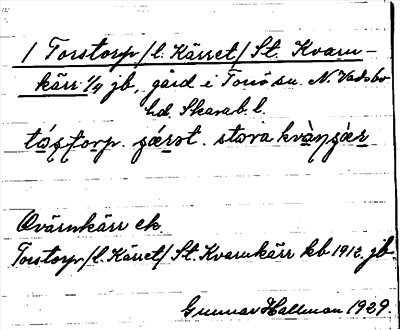 1 Torstorp /l. Kärret/ St. Kvarn-
kärr 1/4 jb, gård i Torsö sn. N. Vadsbo
hd. Skarab. l.
stora
Qvärnkärr ek
Torstorp /l. Kärret/ St. Kvarnkärr kb 1912. jb.
Gunnar Hallman 1929.